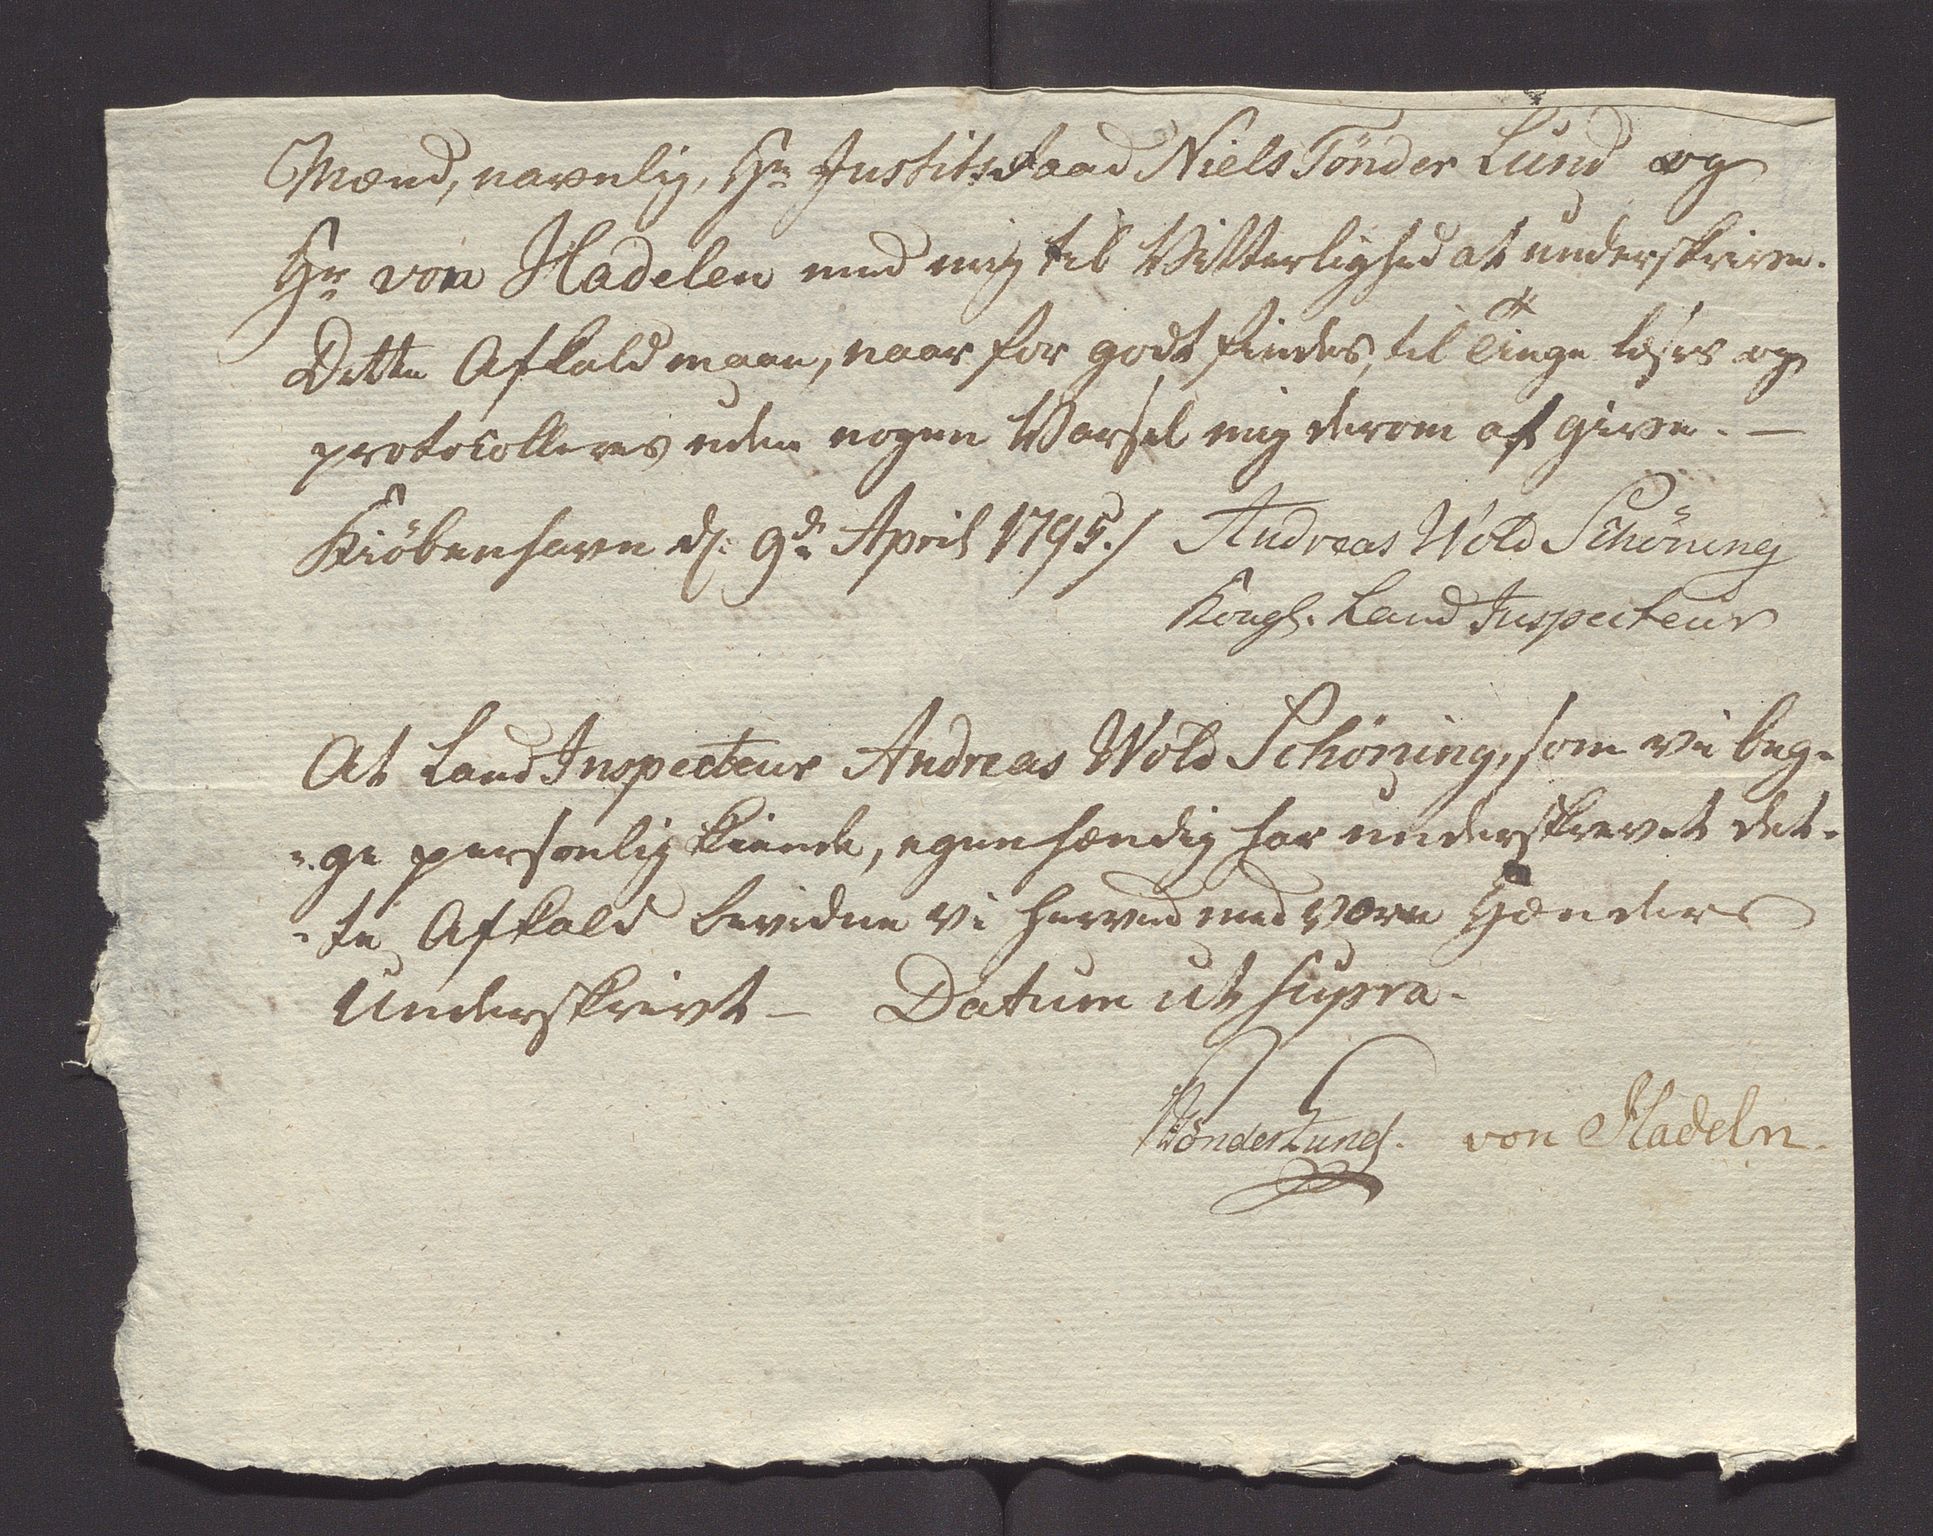 Mænd, navnlig, Hr Justitsraad Niels Tønder Lund og
Hr von Hadelen med mig til Vitterlighed at underskrive.
Dette Afkald maae, naar for godt findes, til Tinge læses og
protocolleres uden nogen Varsel mig derom at give. —
Kiöbenhavn d: 9de April 1795./ Andreas Wold Schöning
Kongl. Land Inspecteur
At Land Inspecteur Andreas Wold Schöning, som vi beg-
-ge personlig kiende, egenhændig har underskrevet det-
-te Afkald bevidne vi herved med vore Hænders
Underskrivt — Datum ut supra.
NTönderLund. von Hadeln.